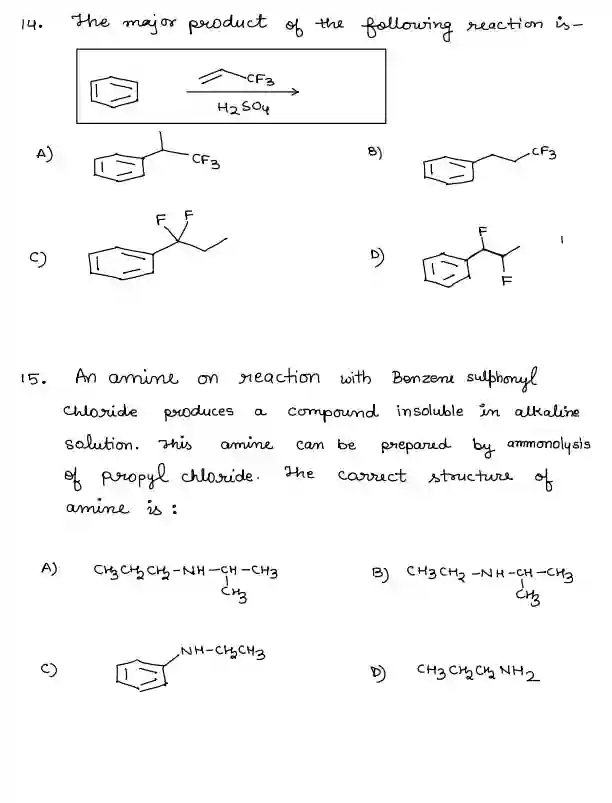 14. The major product of the following reaction is-
CF3
H2SO4
A) CF3
B) CF3
C) F F
D) F F
15. An amine on reaction with Benzene sulphonyl
chloride produces a compound insoluble in alkaline
solution. This amine can be prepared by ammonolysis
of propyl chloride. The correct structure of
amine is :
A) CH3CH2CH2-NH-CH-CH3
CH3
B) CH3CH2-NH-CH-CH3
CH3
C) NH-CH2CH3
D) CH3CH2CH2NH2